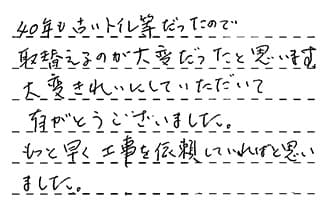 40年も古いトイレ等だったので
取替えるのが大変だったと思います
大変きれいにしていただいて
有がとうございました。
もっと早く工事を依頼していればと思い
ました。